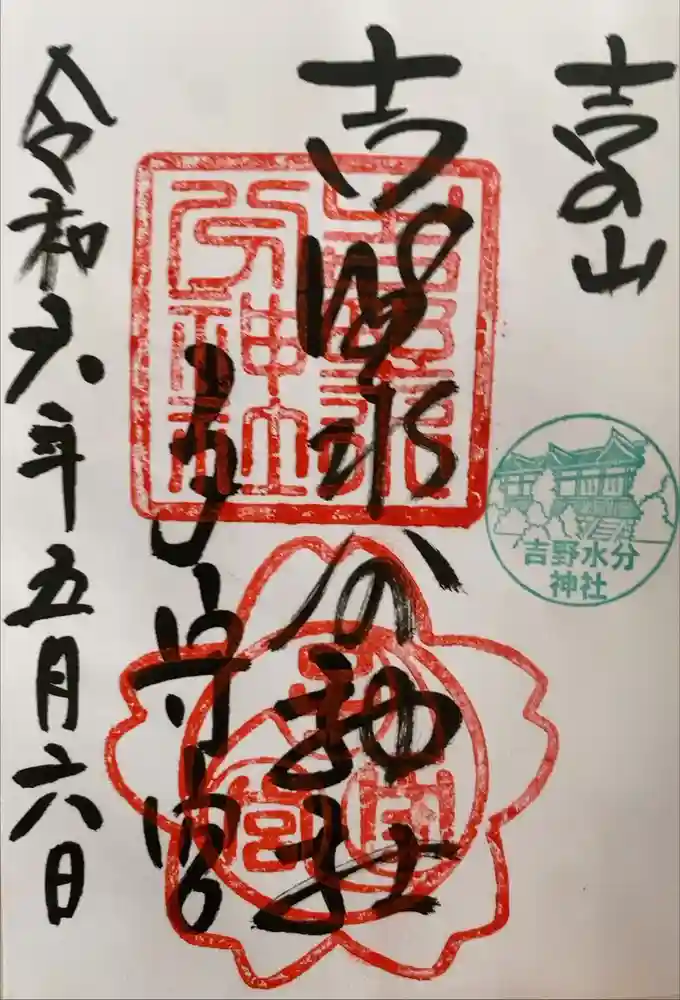 吉野山
吉野水分神社
子守宮
令和六年五月六日
吉野水分神社
吉野水分
神社
子守宮